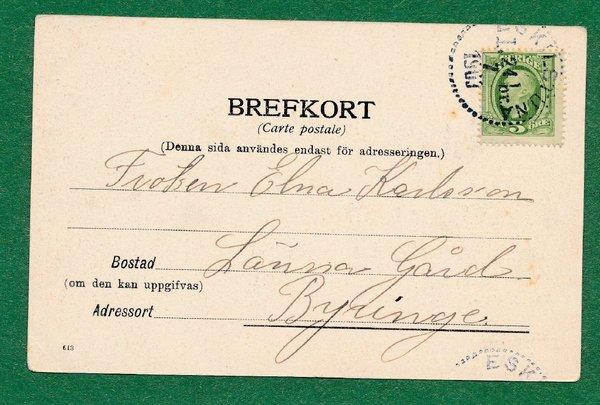 ESK
BREFKORT
(Carte postale)
(Denna sida användes endast för adresseringen.)
Froken Elna Karlsson
Bostad Länna Gård
(om den kan uppgifvas)
Adressort Byringe.
613
ESK